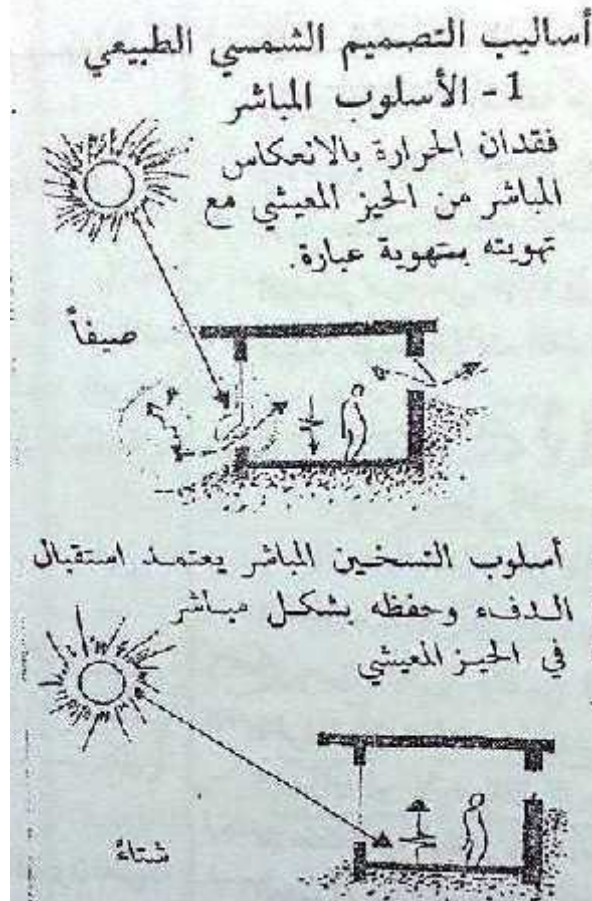 أساليب التصميم الشمسي الطبيعي
1- الأسلوب المباشر
فقدان الحرارة بالانعكاس
المباشر من الحيز المعيشي مع
تهويته بتهوية عبارة.
صيفاً
أسلوب التسخين المباشر يعتمد استقبال
الدفء وحفظه بشكل مباشر
في الحيز المعيشي
شتاءً